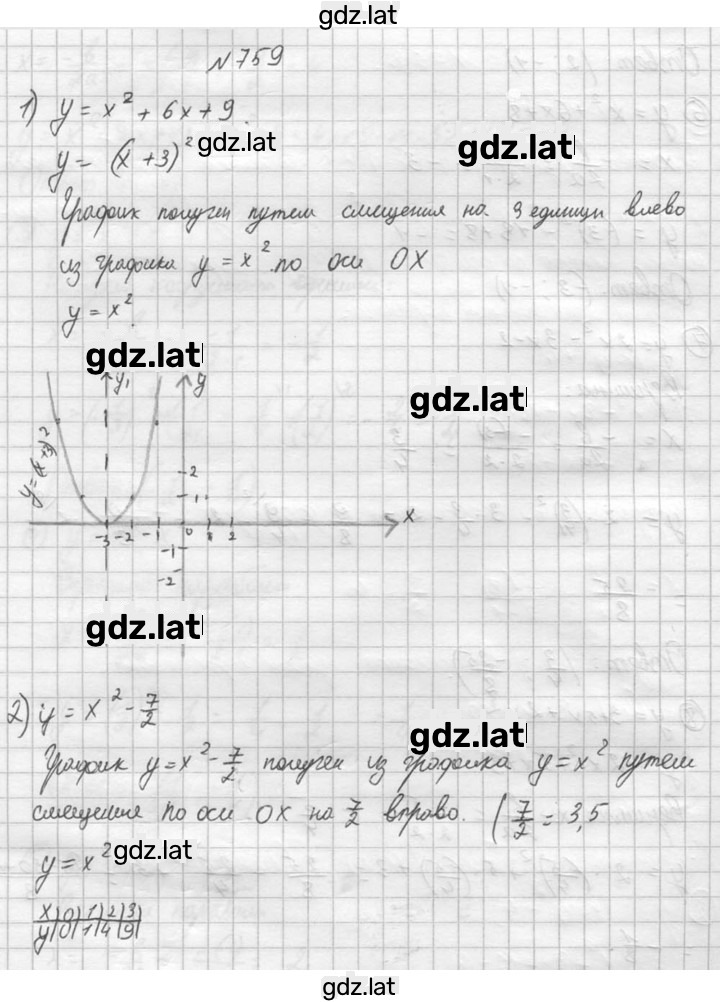 gdz.lat
№759
1) y = x² + 6x + 9.
gdz.lat
gdz.lat
y = (x + 3)²
График получен путем смещения на 3 единицы влево
из графика y = x². по оси OX
y = x².
gdz.lat
gdz.lat
y₁ y
y=(x+3)²
2
1
x
-3 -2 -1 0 1 2
-1
-2
gdz.lat
2) y = x² - 7/2
gdz.lat
График y = x² - 7/2 получен из графика y = x² путем
смещения по оси OX на 7/2 вправо. (7/2 = 3,5
y = x²
gdz.lat
x|0|1|2|3|
y|0|1|4|9|
gdz.lat